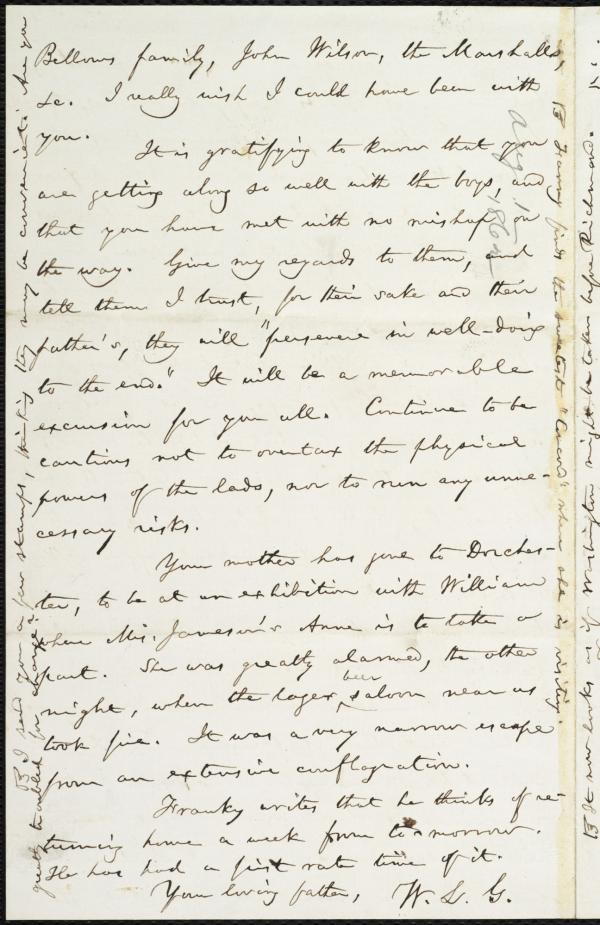 Bellows family, John Wilson, the Marshalls,
&c. I really wish I could have been with
you.
It is gratifying to know that you
are getting along so well with the boys, and
that you have met with no mishap on
the way. Give my regards to them, and
tell them I trust, for their sake and their
father's, they will "persevere in well-doing
to the end." It will be a memorable
excursion for you all. Continue to be
cautious not to overtax the physical
powers of the lads, nor to run any unne-
cessary risks.
Your mother has gone to Dorches-
ter, to be at an exhibition with William
where Mis. Jameson's Anne is to take a
part. She was greatly alarmed, the other
night, when the lager beer saloon near us
took fire. It was a very narrow escape
from an extensive conflagration.
Franky writes that he thinks of re-
turning home a week from to-morrow.
He has had a first rate time of it.
Your loving father, W. L. G.
I send you a few stamps, thinking they may be convenient. Are you
greatly troubled for change?
Fanny finds the sweetest when she is visiting.
It now looks as if Washington might be taken before Richmond.
Aug. 1864